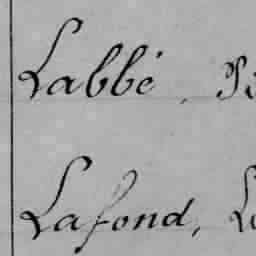 Labbé,
Lafond,